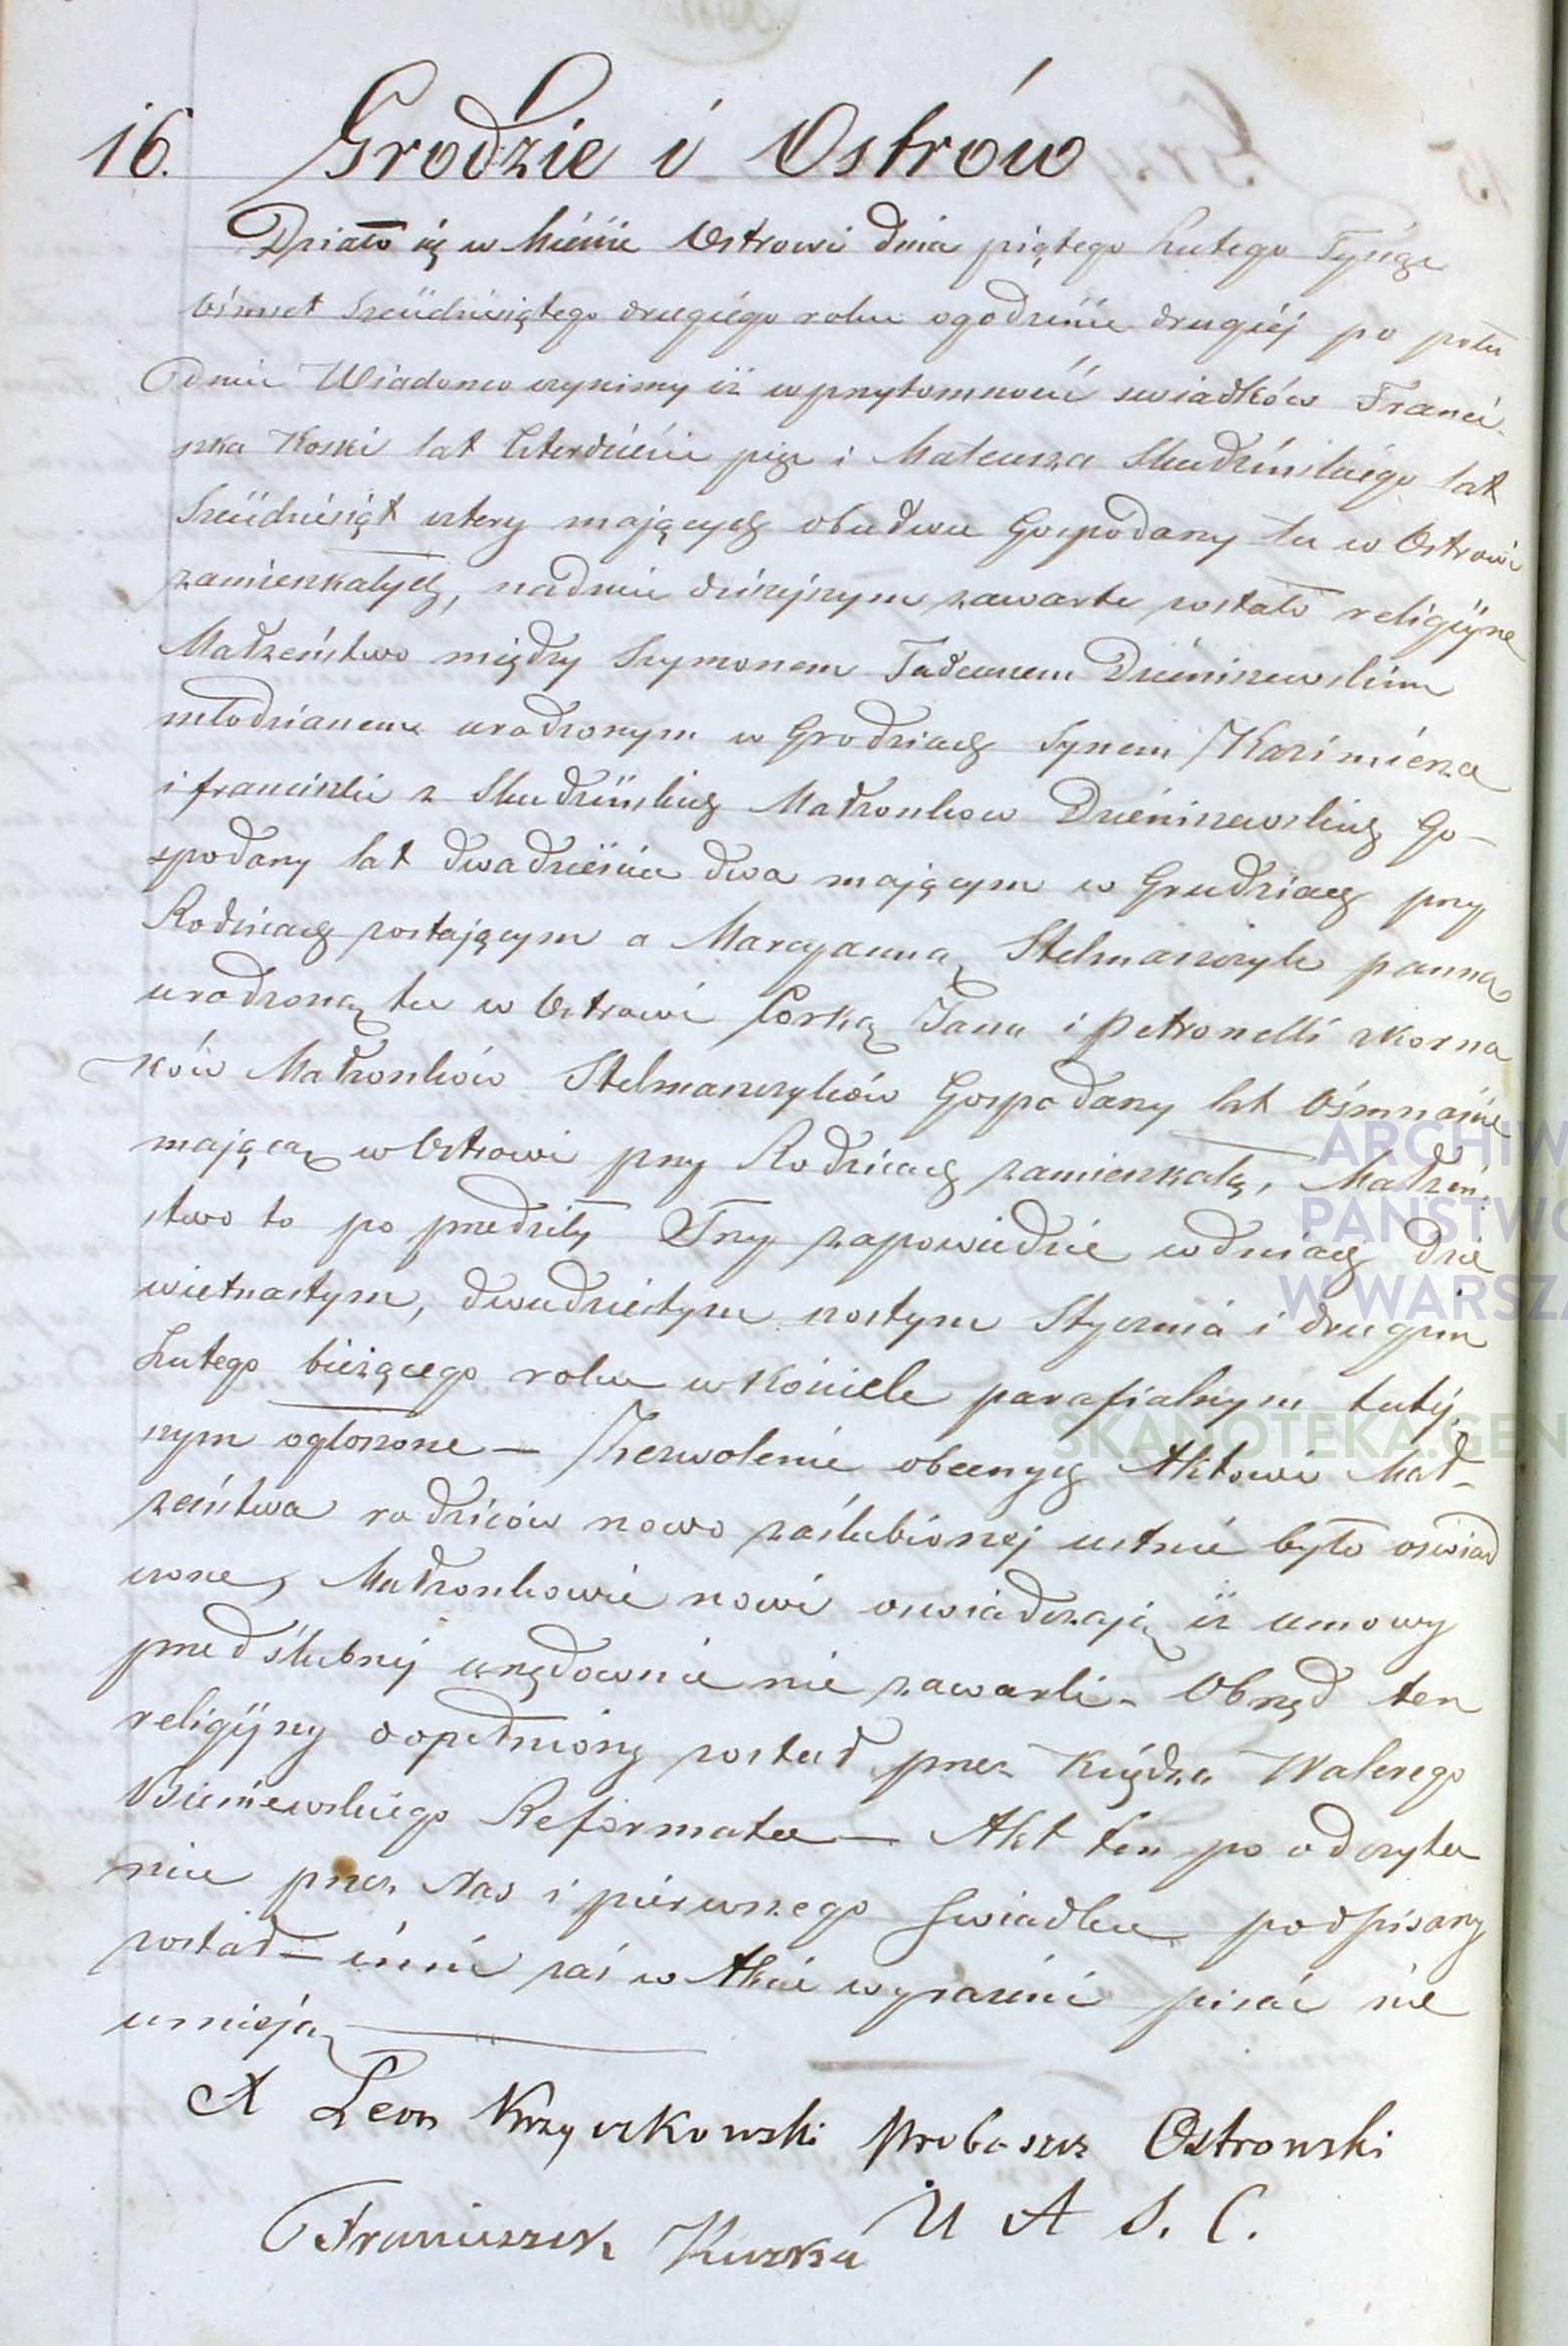 16. Grodzie i Ostrów
Działo się w Mieście Ostrowi dnia piątego Lutego Tysiąc
Ośmset Sześćdziesiątego drugiego roku o godzinie drugiéj po połu
dniu Wiadomo czynimy iż w przytomności swiadków Franci-
szka Koski lat Czterdzieści pięc i Mateusza Skudzińskiego lat
Sześćdziesiąt cztery mających obudwu Gospodarzy tu w Ostrowi
zamieszkałych, na dniu dzisiejszym zawarte zostało religijne
Małżeństwo między Szymonem Tadeuszem Dzieniszewskim
młodzianem urodzonym w Grodziach Synem Kazimierza
i franciszki z Skudzińskich Małżonkow Dzieniszewskich Go-
spodarzy lat dwadzieścia dwa mającym w Grudziach przy
Rodzicach zostającym a Marcyanną Stelmaszczyk panną
urodzoną tu w Ostrowi Corką Jana i Petronelli z Korna
ków Małżonków Stelmaszczyków Gospodarzy lat Ośmnaście
mającą w Ostrowi przy Rodzicach zamieszkałą, Małżeń-
stwo to po przedziły Trzy zapowiedzie w dniach dzie
wietnastym, dwudziestym szostym Stycznia i drugim
Lutego bieżącego roku w Kościele parafialnym tutéj
szym ogłoszone — Zezwolenie obecnych Aktowi Mał-
żeństwa rodziców nowo zaślubionej ustnie było oswiad
czone, Małżonkowie nowi oswiadczają iż umowy
przedślubnéj urzędownie nie zawarli - Obrzęd ten
religijny dopełniony został przez Księdza Walerego
Reformata — Akt ten po odczyta
niu przez Nas i pierwszego Swiadka podpisany
został — inni zaś w Akcie wyrażeni pisać nie
umieją
X Leon Krzyczkowski Proboszcz Ostrowski
U A S. C.
Franciszek Kuzka
ARCHIW
PAŃSTWO
W WARSZA
SKANOTEKA.GEN